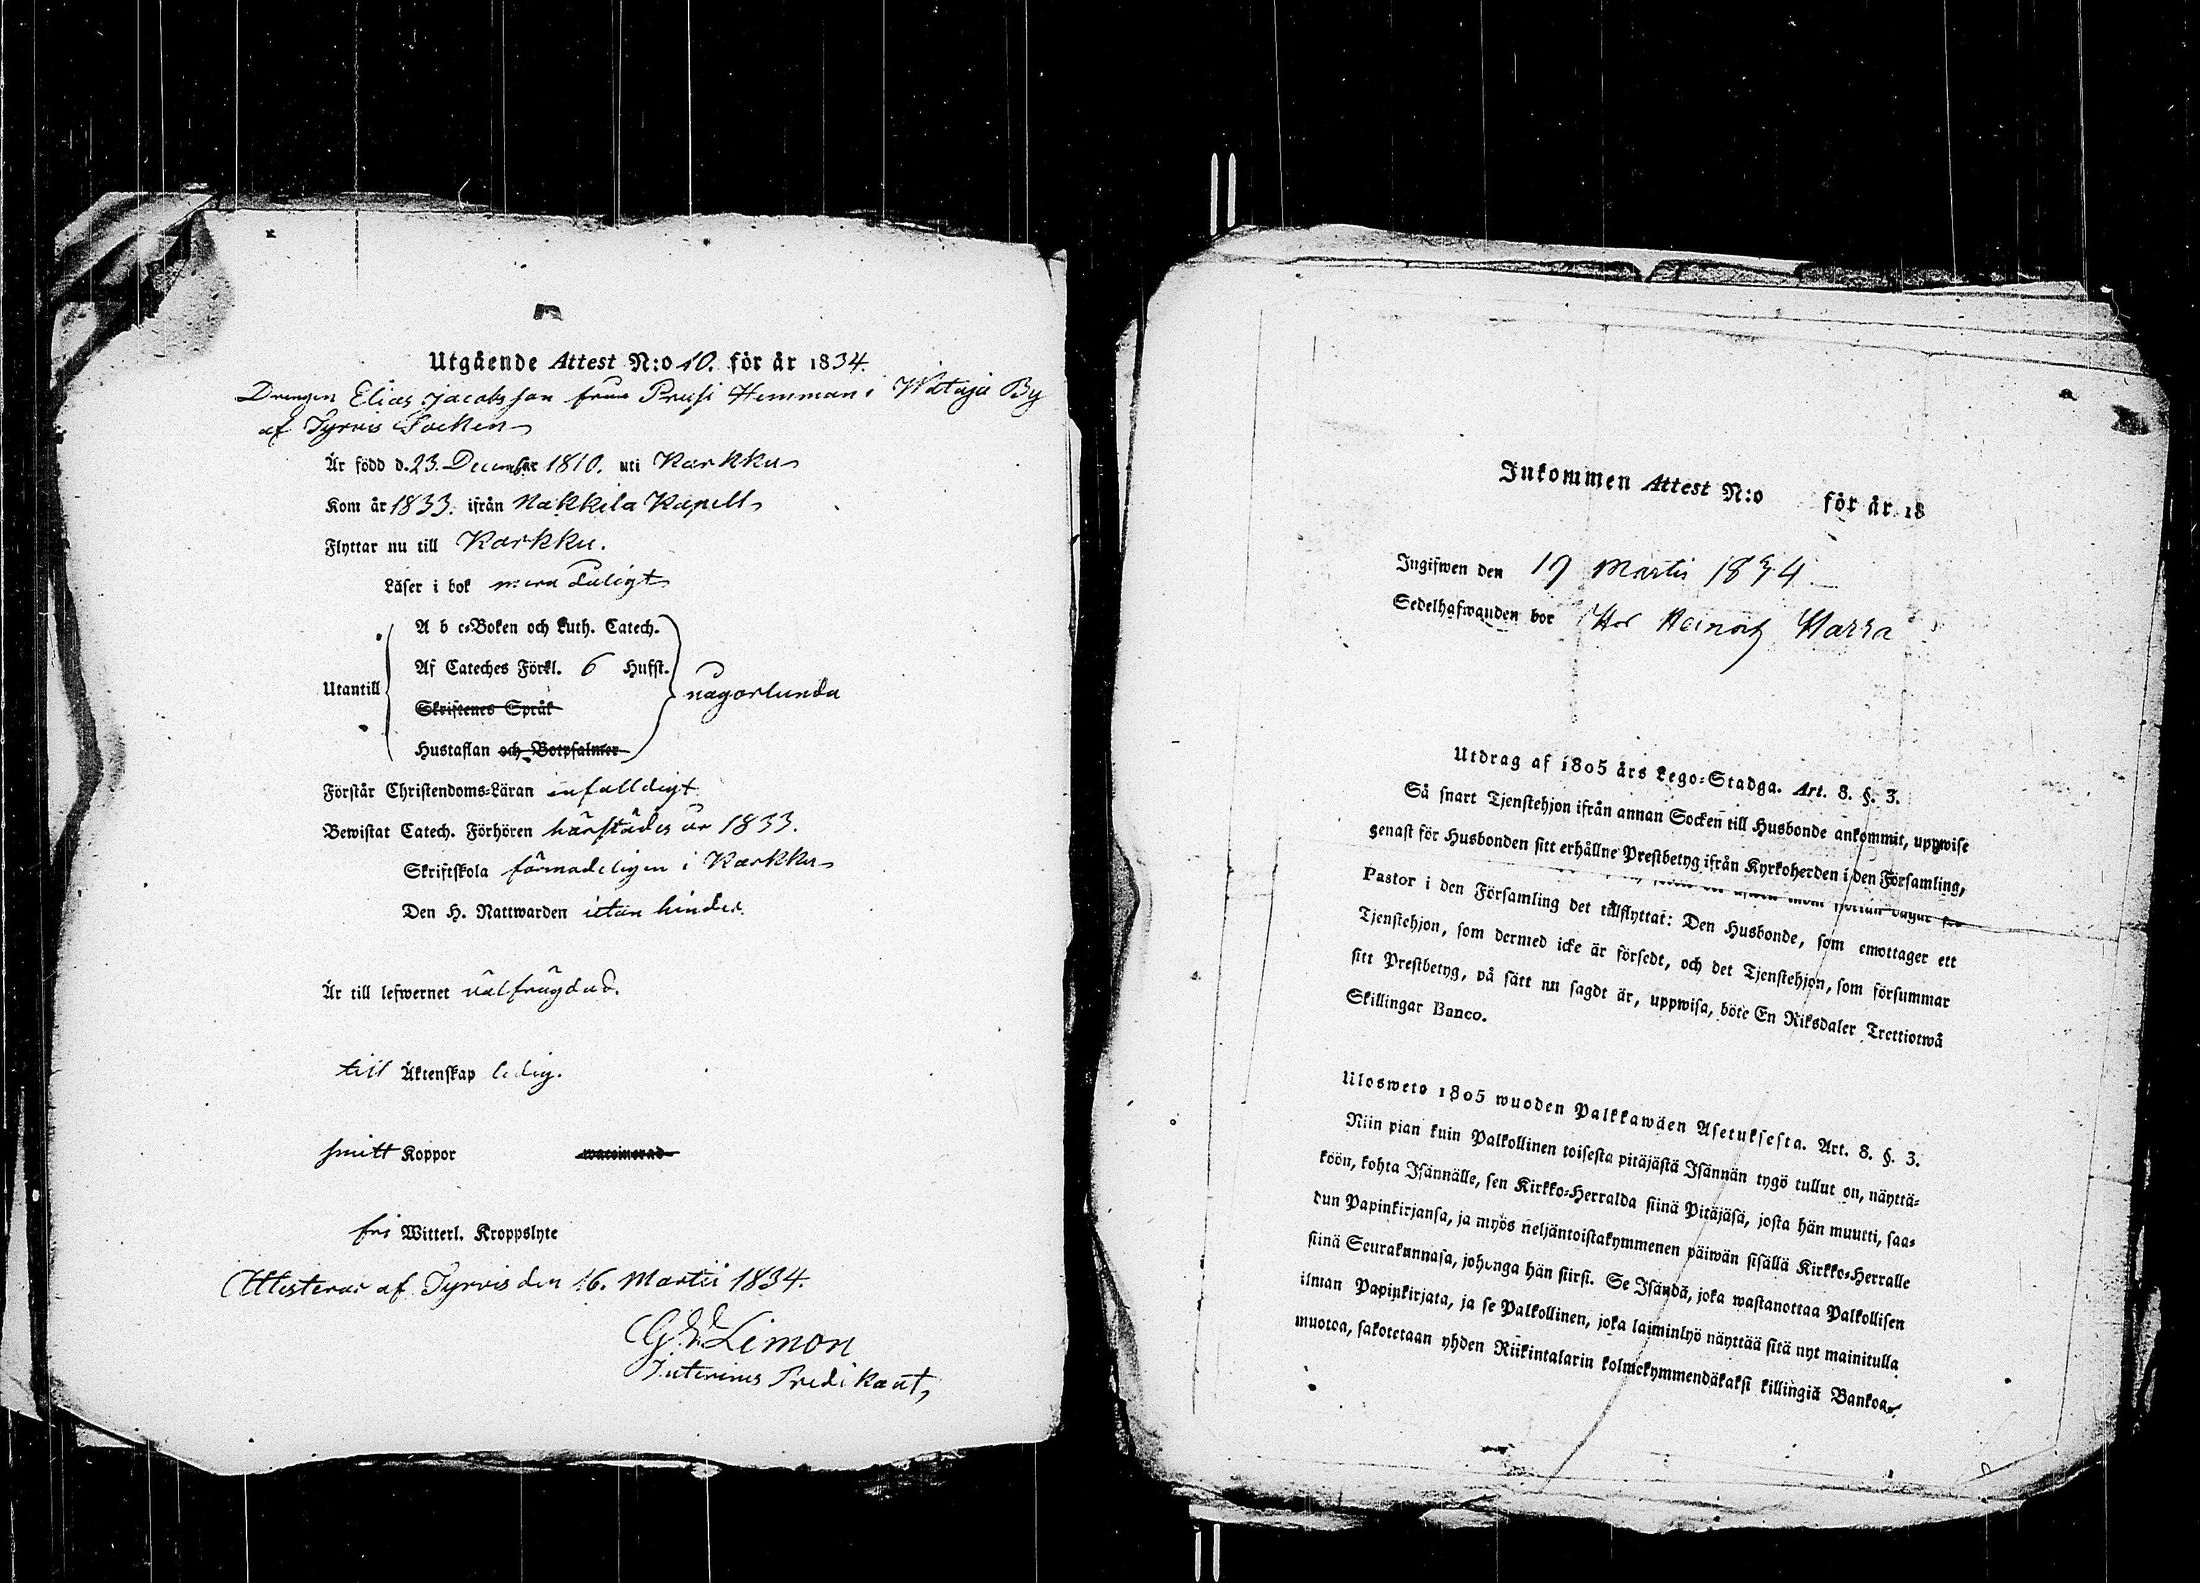 Utgående Attest N:o 10. för år 1834.
Drengen Elias Jacobsson från Prusi Hemman i Wataja By
af Tyrvis Socken
Är född d. 23. December 1810. uti Karkku
Kom år 1833. ifrån Nakkila Kapell
Flyttar nu till Karkku.
Läser i bok
A b c-Boken och Luth. Catech.
Af Cateches Förkl. 6 Hufst.
Utantill
någorlunda
Skriftenes Språk
Hustaflan och Botpsalmer
Förstår Christendoms-Läran enfalldigt
Bewistat Catech. Förhören härstädes år 1833.
Skriftskola förmodeligen i Karkku
Den H. Nattwarden utan hinder.
Är till lefwernet välfrägdad.
till Äktenskap ledig.
haft Koppor waccinerad
fri Witterl. Kroppslyte
Attesterar af Tyrvis den 16. Martii 1834.
Limon
Interims Predikant,
Inkommen Attest N:o för år 18
Ingifwen den 17 Martii 1834
Sedelhafwanden bor Hos Harra
Utdrag af 1805 års Lego-Stadga. Art. 8. §. 3.
Så snart Tjenstehjon ifrån annan Socken till Husbonde ankommit, uppwise
genast för Husbonden sitt erhållne Prestbetyg ifrån Kyrkoherden i den Församling,
Pastor i den Församling det tillflyttat: Den Husbonde, som emottager ett
Tjenstehjon, som dermed icke är försedt, och det Tjenstehjon, som försummar
sitt Prestbetyg, på sätt nu sagdt är, uppwisa, böte En Riksdaler Trettiotwå
Skillingar Banco.
Ulosweto 1805 wuoden Palkkawäen Asetuksesta. Art. 8. §. 3.
Niin pian kuin Palkollinen toisesta pitäjästä Isännän tygö tullut on, näyttä-
köön, kohta Isännälle, sen Kirkko-Herralda siinä Pitäjäsä, josta hän muutti, saa-
dun Papinkirjansa, ja myös neljäntoistakymmenen päiwän sisällä Kirkko-Herralle
siinä Seurakunnasa, johonga hän siirsi. Se Isändä, joka wastanottaa Palkollisen
ilman Papinkirjata, ja se Palkollinen, joka laiminlyö näyttää sitä nyt mainitulla
muotoa, sakotetaan yhden Riikintalarin kolmekymmendäkaksi killingiä Bankoa.